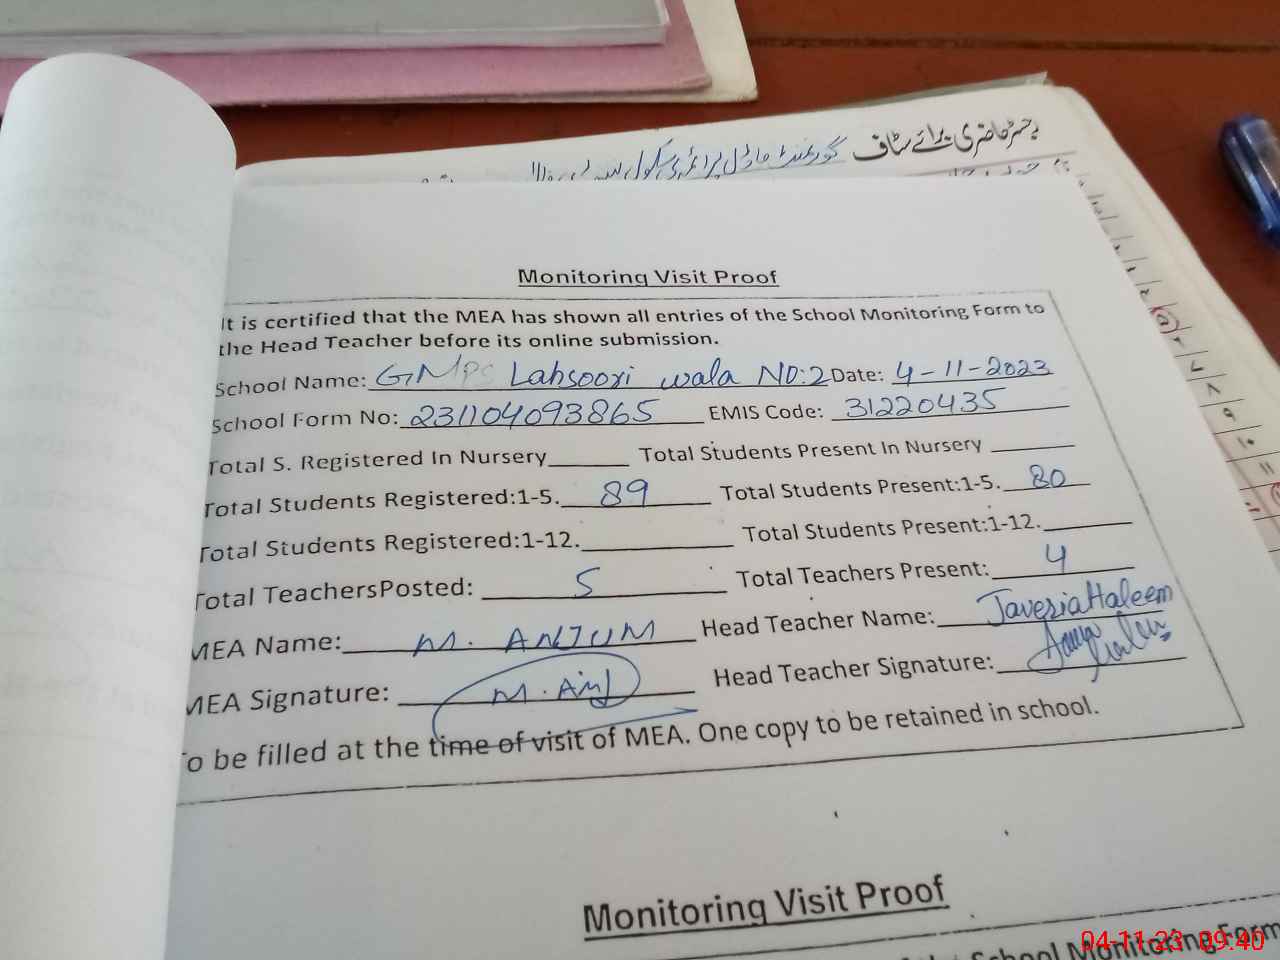 رجسٹر حاضری برائے سٹاف گورنمنٹ ماڈل پرائمری سکول
Monitoring Visit Proof
It is certified that the MEA has shown all entries of the School Monitoring Form to
the Head Teacher before its online submission.
School Name: GMPS Lahsoori wala NO:2 Date: 4-11-2023
School Form No: 231104093865 EMIS Code: 31220435
Total S. Registered In Nursery______ Total Students Present In Nursery ______
Total Students Registered:1-5. 89 Total Students Present:1-5. 80
Total Students Registered:1-12.______ Total Students Present:1-12.______
Total TeachersPosted: 5 Total Teachers Present: 4
MEA Name: M. ANJUM Head Teacher Name: JaveriaHaleem
MEA Signature: M. Anj Head Teacher Signature:
To be filled at the time of visit of MEA. One copy to be retained in school.
Monitoring Visit Proof
School Monitoring Form
04-11-23 09:40